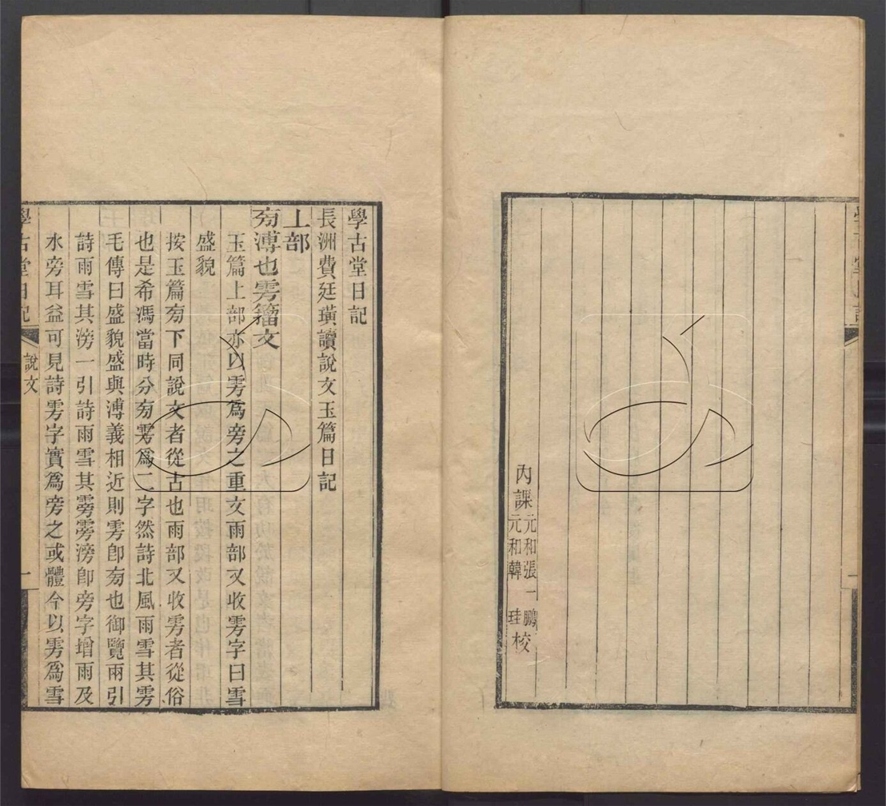 內課元和張一鵬
元和韓 珪校
學古堂日記
長洲費廷璜讀說文玉篇日記
丄部
㫄溥也雱籀文
玉篇上部亦以雱爲旁之重文雨部又收雱字曰雪
盛貌
按玉篇㫄下同說文者從古也雨部又收雱者從俗
也是希馮當時分㫄雱爲二字然詩北風雨雪其雱
毛傳曰盛貌盛與溥義相近則雱卽㫄也御覽兩引
詩雨雪其滂一引詩雨雪其霶雱滂卽旁字增雨及
水旁耳益可見詩雱字實爲旁之或體今以雱爲雪
學古堂日記
說文
一